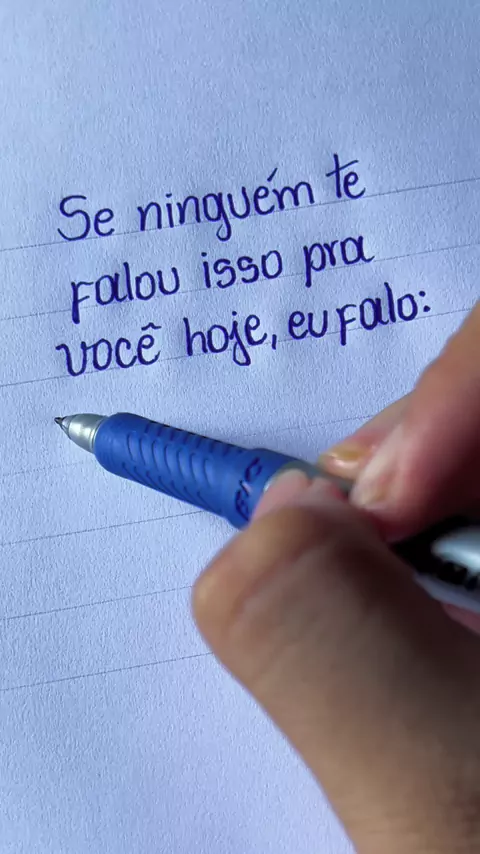 Se ninguém te
falou isso pra
você hoje, eu falo:
BIC